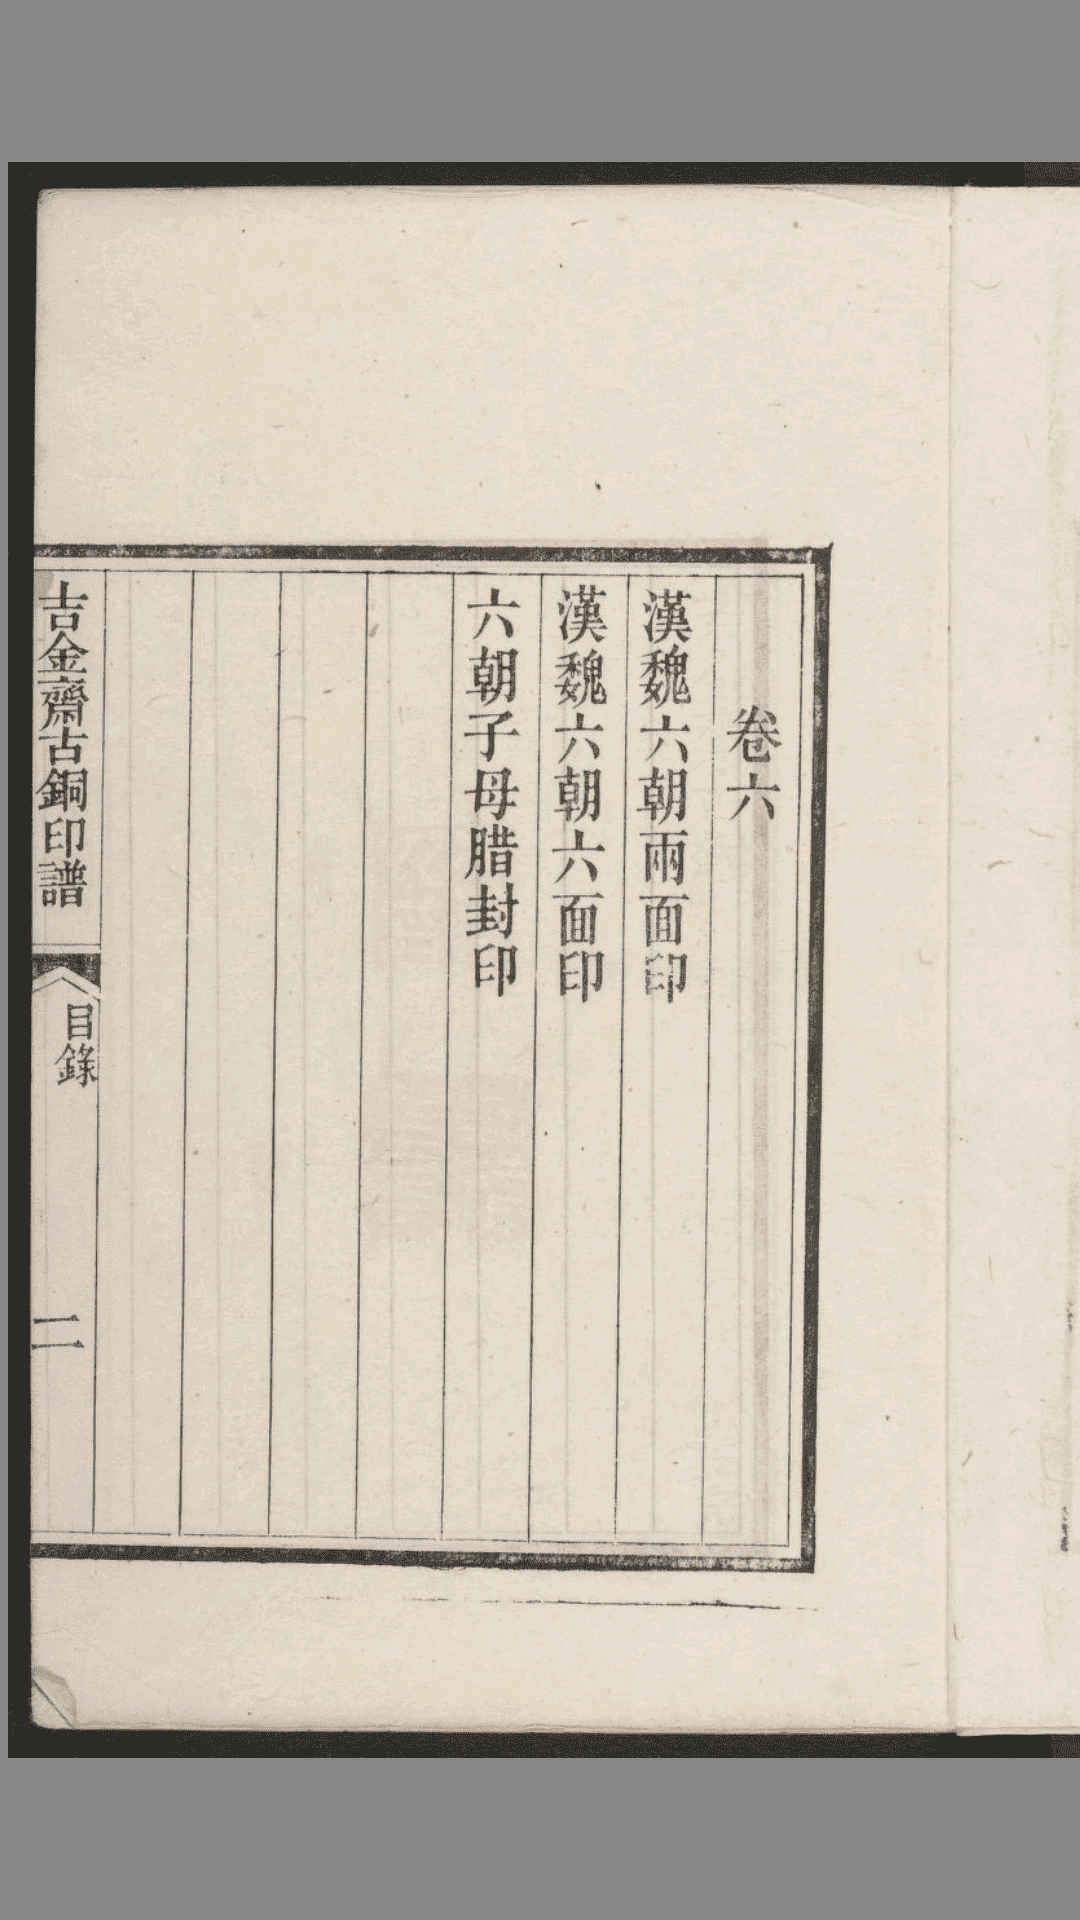 卷六
漢魏六朝兩面印
漢魏六朝六面印
六朝子母腊封印
吉金齋古銅印譜
目錄
二